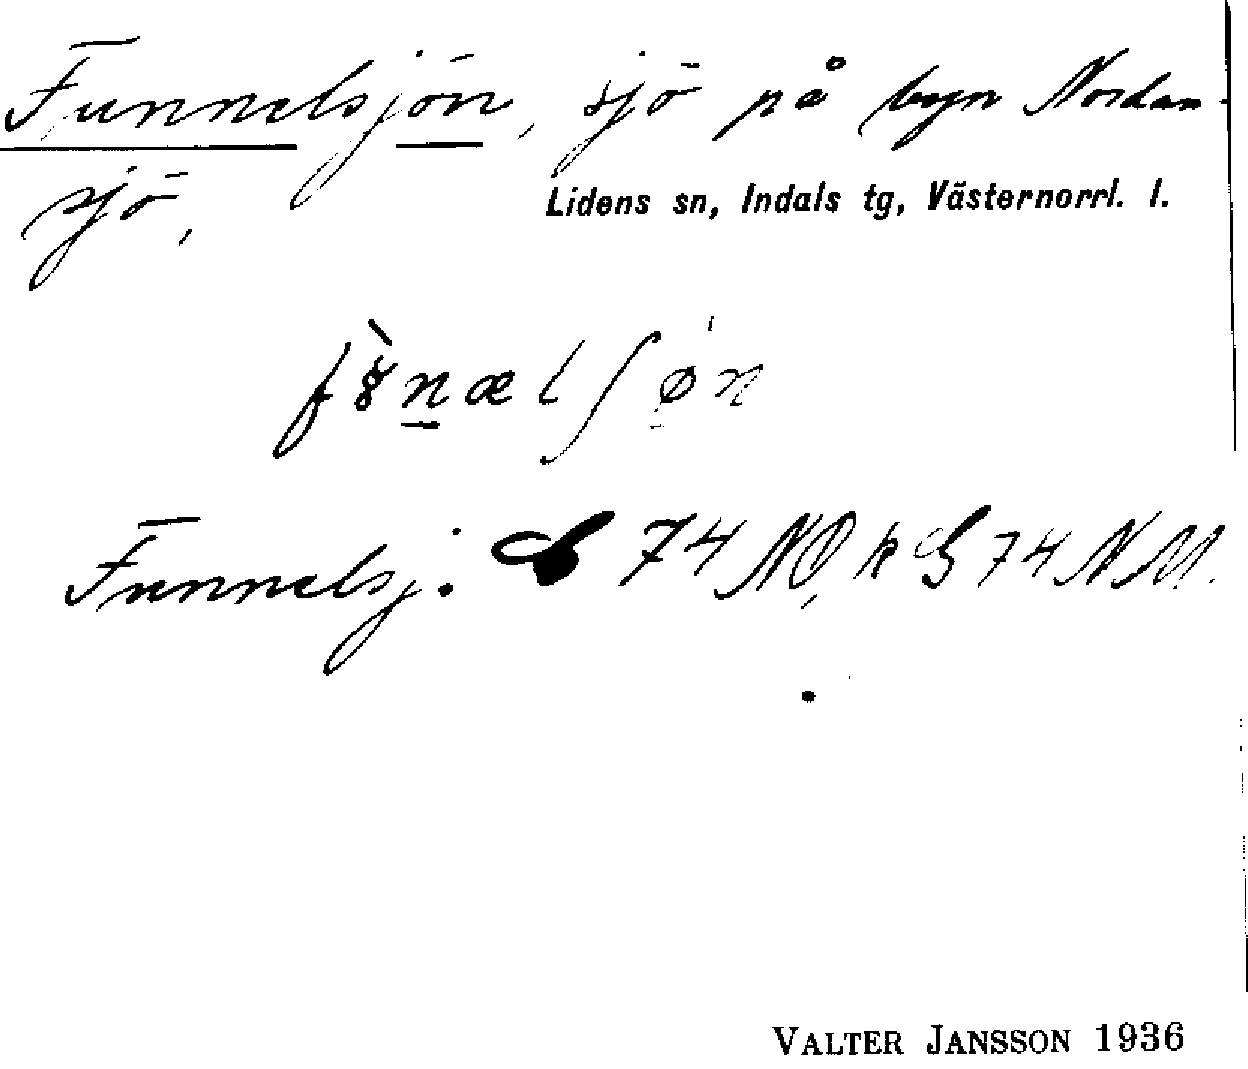 Funnelsjön, sjö på byn Nordan-
sjö,
Lidens sn, Indals tg, Västernorrl. l.
Funnelsj. 74 NO, k G 74 NM.
VALTER JANSSON 1936